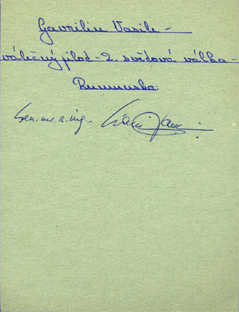 Gavriliu Vasile -
válečný pilot - 2. světová válka -
Rumunsko
Gen. mr. r. ing.